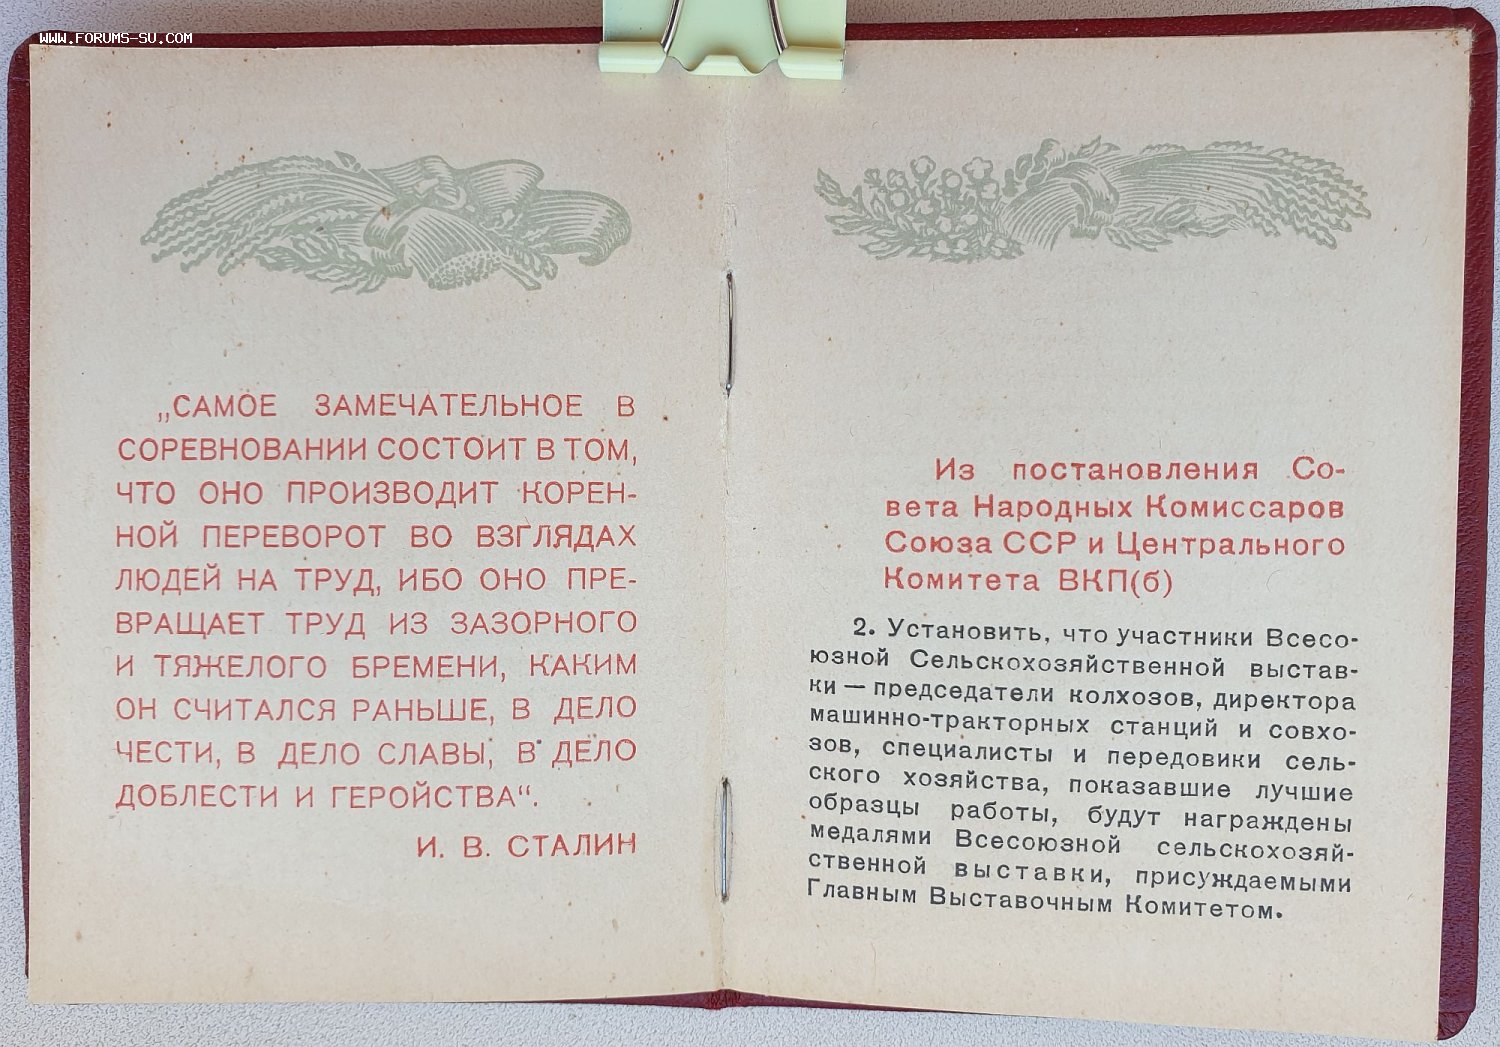 www.FORUMS-SU.COM
„САМОЕ ЗАМЕЧАТЕЛЬНОЕ В
СОРЕВНОВАНИИ СОСТОИТ В ТОМ,
ЧТО ОНО ПРОИЗВОДИТ КОРЕН-
НОЙ ПЕРЕВОРОТ ВО ВЗГЛЯДАХ
ЛЮДЕЙ НА ТРУД, ИБО ОНО ПРЕ-
ВРАЩАЕТ ТРУД ИЗ ЗАЗОРНОГО
И ТЯЖЕЛОГО БРЕМЕНИ, КАКИМ
ОН СЧИТАЛСЯ РАНЬШЕ, В ДЕЛО
ЧЕСТИ, В ДЕЛО СЛАВЫ, В ДЕЛО
ДОБЛЕСТИ И ГЕРОЙСТВА“.
И. В. СТАЛИН
Из постановления Со-
вета Народных Комиссаров
Союза ССР и Центрального
Комитета ВКП(б)
2. Установить, что участники Всесо-
юзной Сельскохозяйственной выстав-
ки — председатели колхозов, директора
машинно-тракторных станций и совхо-
зов, специалисты и передовики сель-
ского хозяйства, показавшие лучшие
образцы работы, будут награждены
медалями Всесоюзной сельскохозяй-
ственной выставки, присуждаемыми
Главным Выставочным Комитетом.